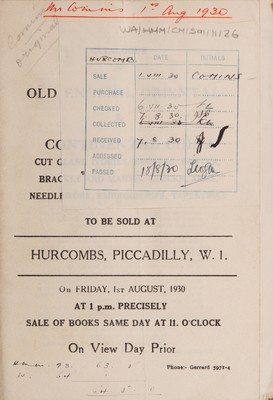 Mr Comins 1st Aug 1930
Comins
original
WA/HMM/CM/Sal/11/26
HURCOMBS DATE INITIALS
SALE 1.VIII.30 COMINS
PURCHASE
CHECKED
COLLECTED 7.8.30
RECEIVED 7.8.30
ACCESSED
PASSED 18/8/30
OLD
CO
CUT G
BRAC
NEEDLE
TO BE SOLD AT
HURCOMBS, PICCADILLY, W. 1.
On FRIDAY, 1st AUGUST, 1930
AT 1 p.m. PRECISELY
SALE OF BOOKS SAME DAY AT 11. O'CLOCK
On View Day Prior
Phone:- Gerrard 5971-4